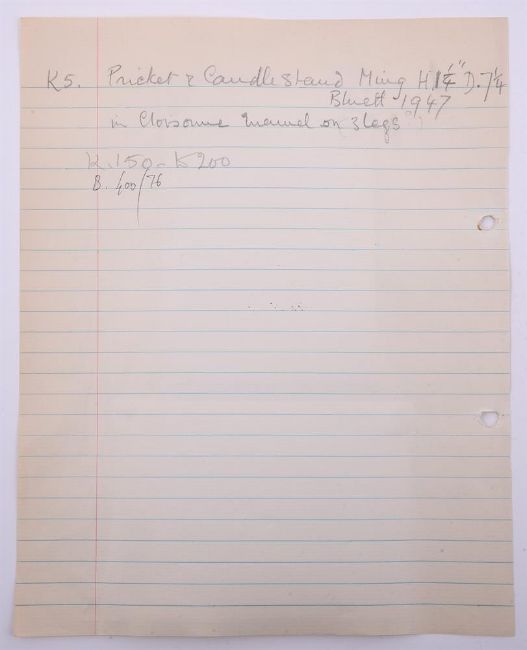 K5. Pricket & Candlestand Ming H. 1¼" D. 7¼
Bluett 1947
in Cloisonne Enamel on 3 legs
K. 150 - K 200
B. 400/76